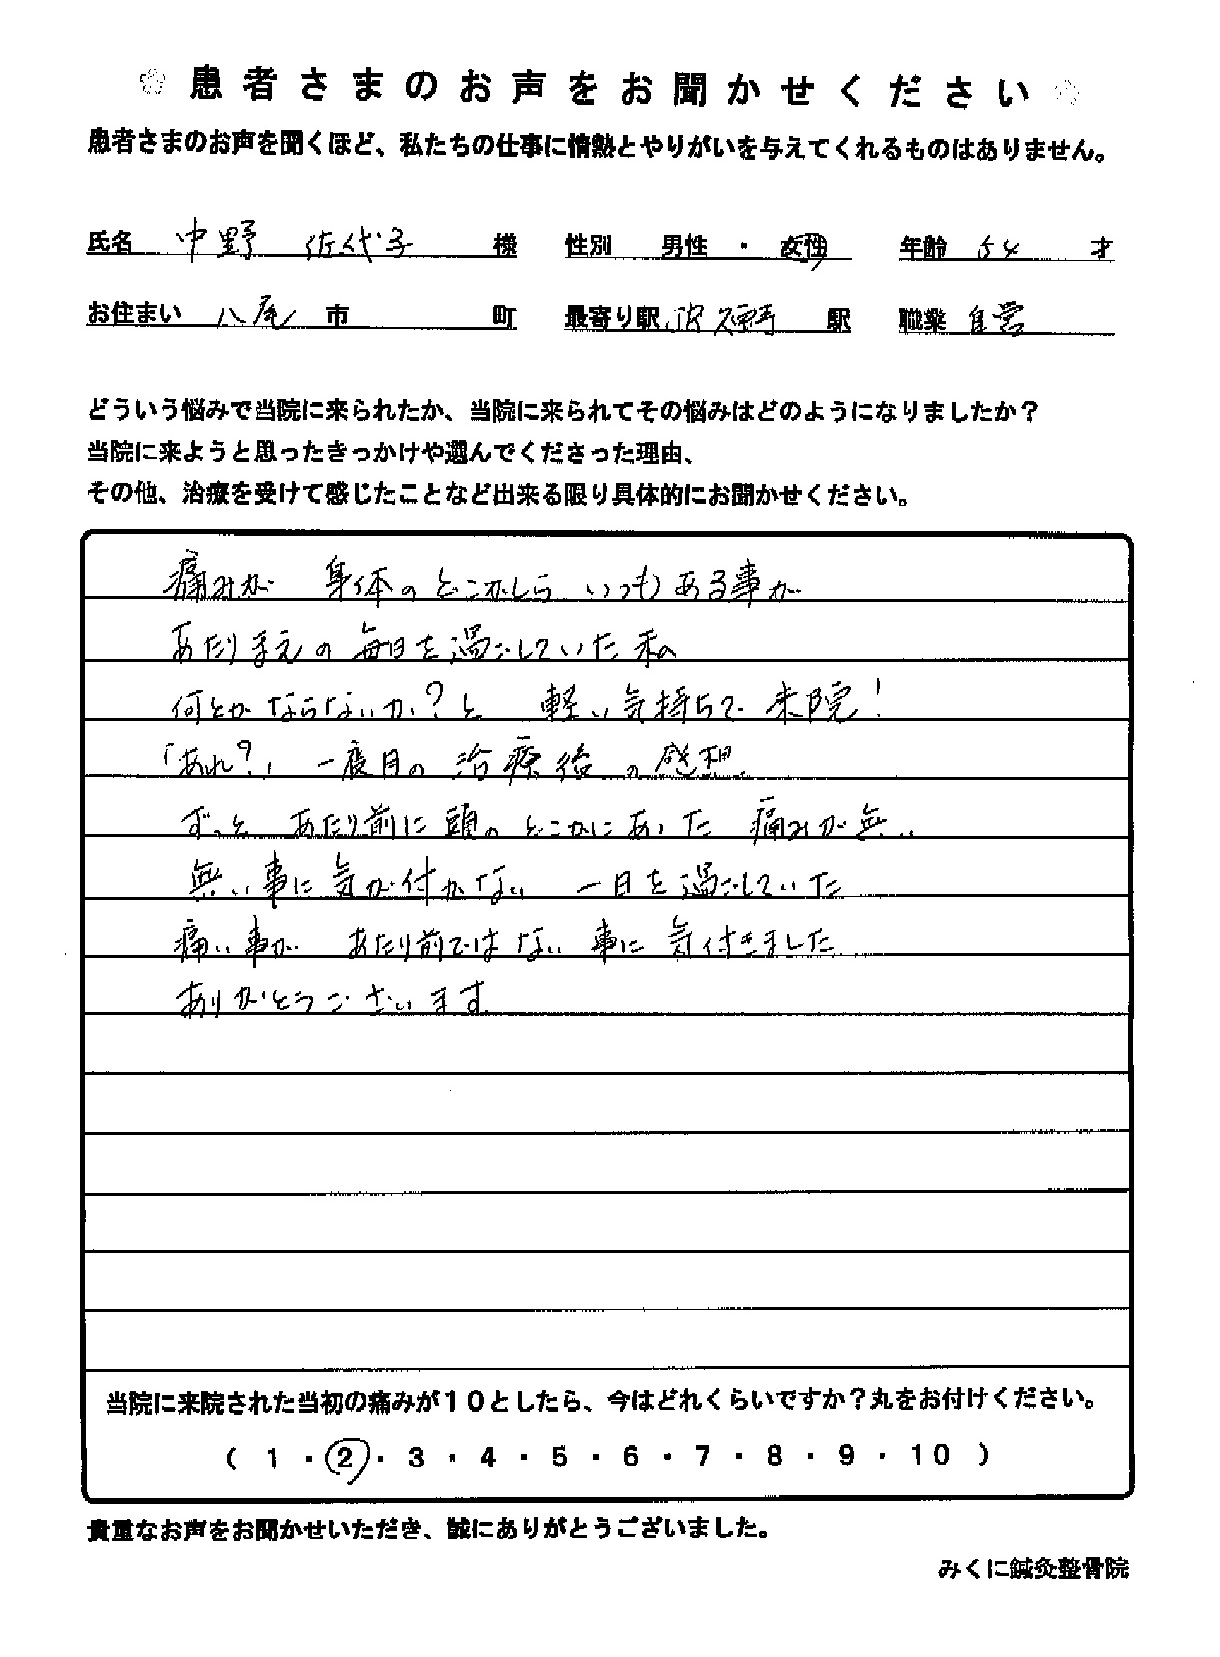 患者さまのお声をお聞かせください
患者さまのお声を聞くほど、私たちの仕事に情熱とやりがいを与えてくれるものはありません。
氏名 中野 佐代子 様 性別 男性 ・ 女性 年齢 54 才
お住まい 八尾 市 町 最寄り駅 JR久宝寺 駅 職業 自営
どういう悩みで当院に来られたか、当院に来られてその悩みはどのようになりましたか?
当院に来ようと思ったきっかけや選んでくださった理由、
その他、治療を受けて感じたことなど出来る限り具体的にお聞かせください。
痛みが 身体のどこかしら いつもある事が
あたりまえの毎日を過ごしていた私
何とかならないか?と 軽い気持ちで来院!
「あれ?」 一度目の治療後の感想。
ずっと あたり前に頭のどこかにあった 痛みが無い
無い事に気が付かない 一日を過ごしていた
痛い事が あたり前ではない事に気付きました
ありがとうございます
当院に来院された当初の痛みが10としたら、今はどれくらいですか?丸をお付けください。
( 1 ・ 2 ・ 3 ・ 4 ・ 5 ・ 6 ・ 7 ・ 8 ・ 9 ・ 10 )
貴重なお声をお聞かせいただき、誠にありがとうございました。
みくに鍼灸整骨院